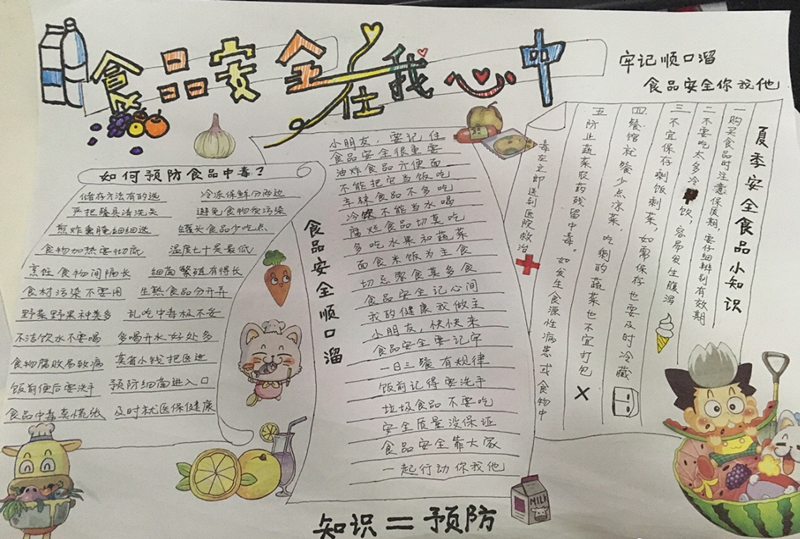 食品安全在我心中
牢记顺口溜
食品安全你我他
如何预防食品中毒?
储存方法有的选 冷冻保鲜分两边
严把餐具清洗关 避免食物受污染
煎炸熏腌细细选 罐头食品少吃点
食物加热要彻底 温度七十是最低
烹饪食物间隔长 细菌繁殖有得长
食材污染不要用 生熟食品分开弄
野菜野果种类多 乱吃中毒极不妥
不洁饮水不要喝 多喝开水好处多
食物腐败易致病
饭前便后要洗手 预防细菌进入口
食品中毒莫慌张 及时就医保健康
食品安全顺口溜
小朋友,要记住
食品安全很重要
油炸食品方便面
不能把它当饭吃
辛辣食品不多吃
冷饮不能当水喝
腐烂食品切莫吃
多吃水果和蔬菜
面食米饭为主食
切忌零食莫多食
食品安全记心间
我的健康我做主
小朋友,快快来
食品安全要记牢
一日三餐有规律
饭前记得要洗手
垃圾食品不要吃
安全质量没保证
食品安全靠大家
一起行动你我他
夏季安全食品小知识
一购买食品时注意保质期,要仔细辨别有效期
二不要吃太多冷饮,容易发生腹泻
三不宜保存剩饭剩菜,如需保存也要及时冷藏
四餐馆就餐少点凉菜,吃剩的蔬菜也不宜打包
五防止蔬菜农药残留中毒。如发生食源性病患或食物中
毒应立即送到医院救治
MILK
知识=预防